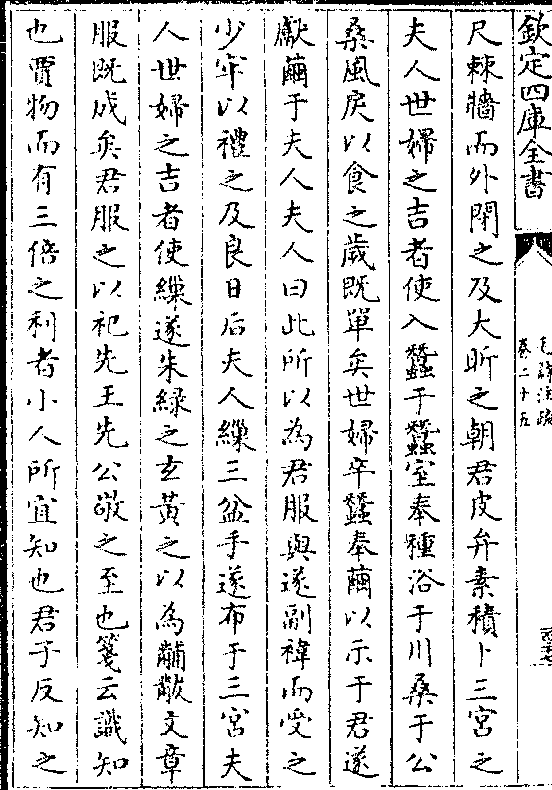 欽定四庫全書
毛詩注疏
卷二十五
尺棘牆而外閉之及大昕之朝君皮弁素積卜三宮之
夫人世婦之吉者使入蠶于蠶室奉種浴于川桑于公
桑風戾以食之歲既單矣世婦卒蠶奉繭以示于君遂
獻繭于夫人夫人曰此所以為君服與遂副褘而受之
少牢以禮之及良日后夫人繅三盆手遂布于三宮夫
人世婦之吉者使繅遂朱綠之玄黃之以為黼黻文章
服既成矣君服之以祀先王先公敬之至也箋云識知
也賈物而有三倍之利者小人所宜知也君子反知之